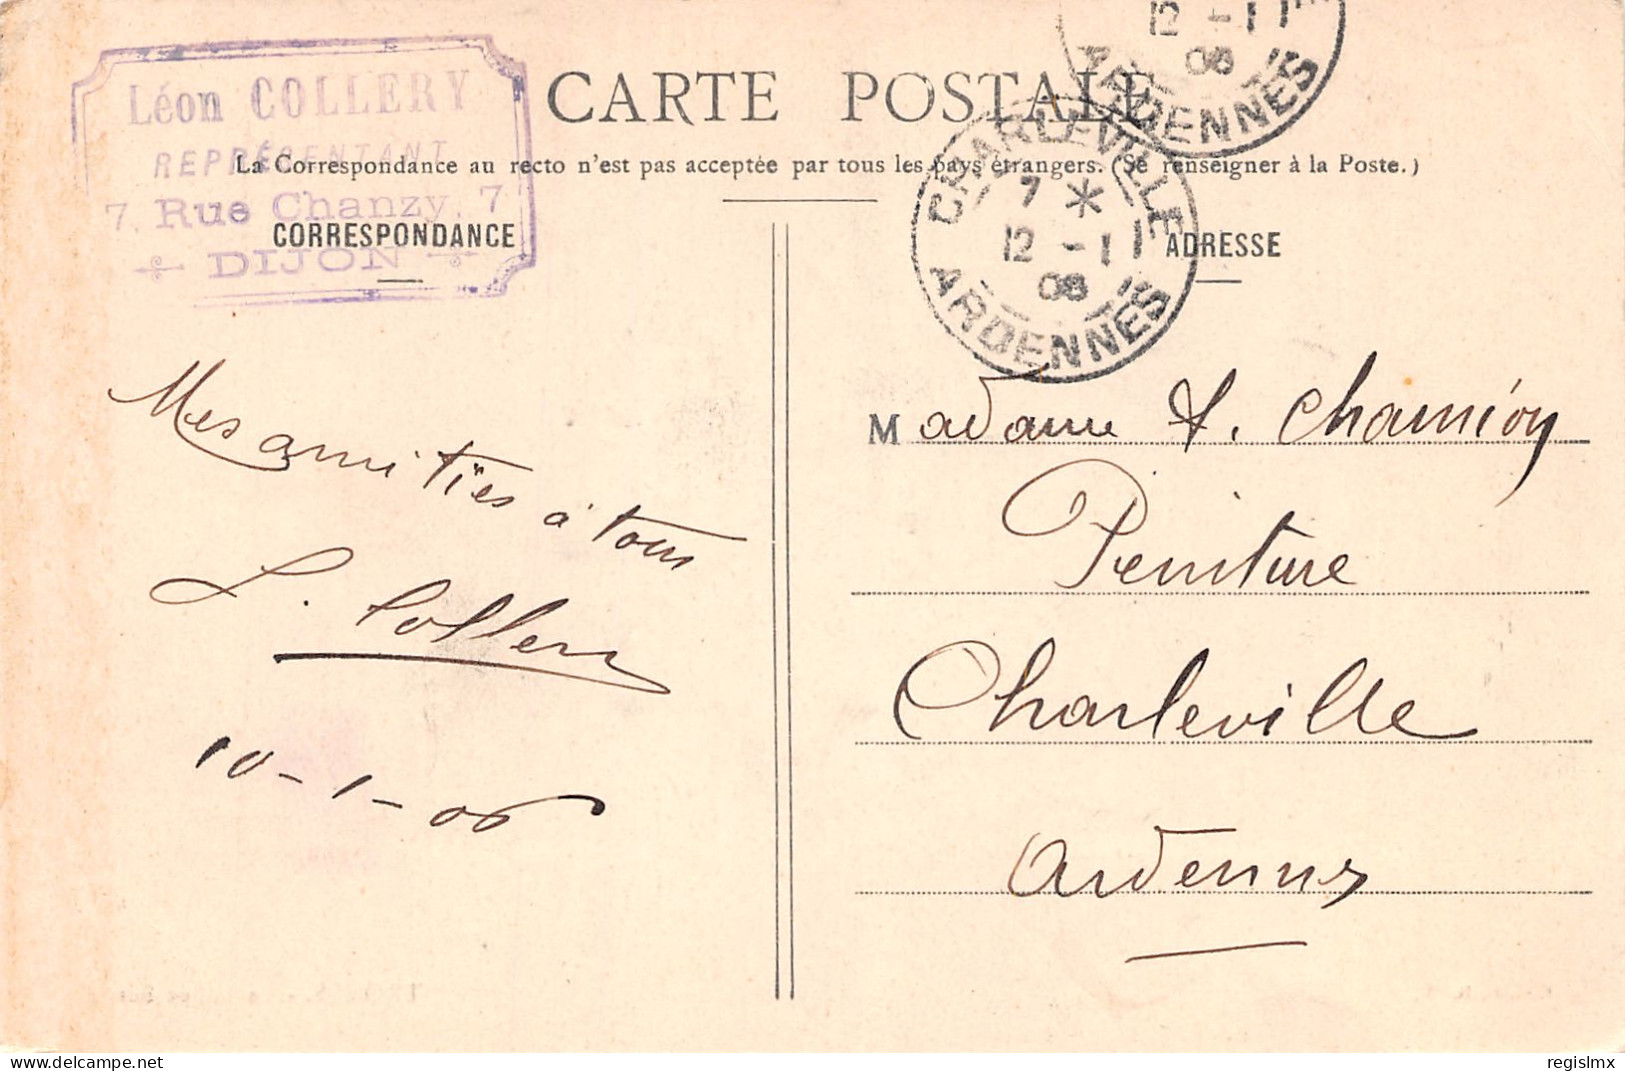 Léon COLLERY
REPRÉSENTANT
7, Rue Chanzy, 7
DIJON
CARTE POSTALE
La Correspondance au recto n'est pas acceptée par tous les pays étrangers. (Se renseigner à la Poste.)
CORRESPONDANCE
ADRESSE
12 - 1
08
ARDENNES
CHARLEVILLE
7 *
12 - 1
08
ARDENNES
Mes amitiés à tous
L. Collery
10-1-08
Madame A. Chamion
Peinture
Charleville
Ardennes
regislmx